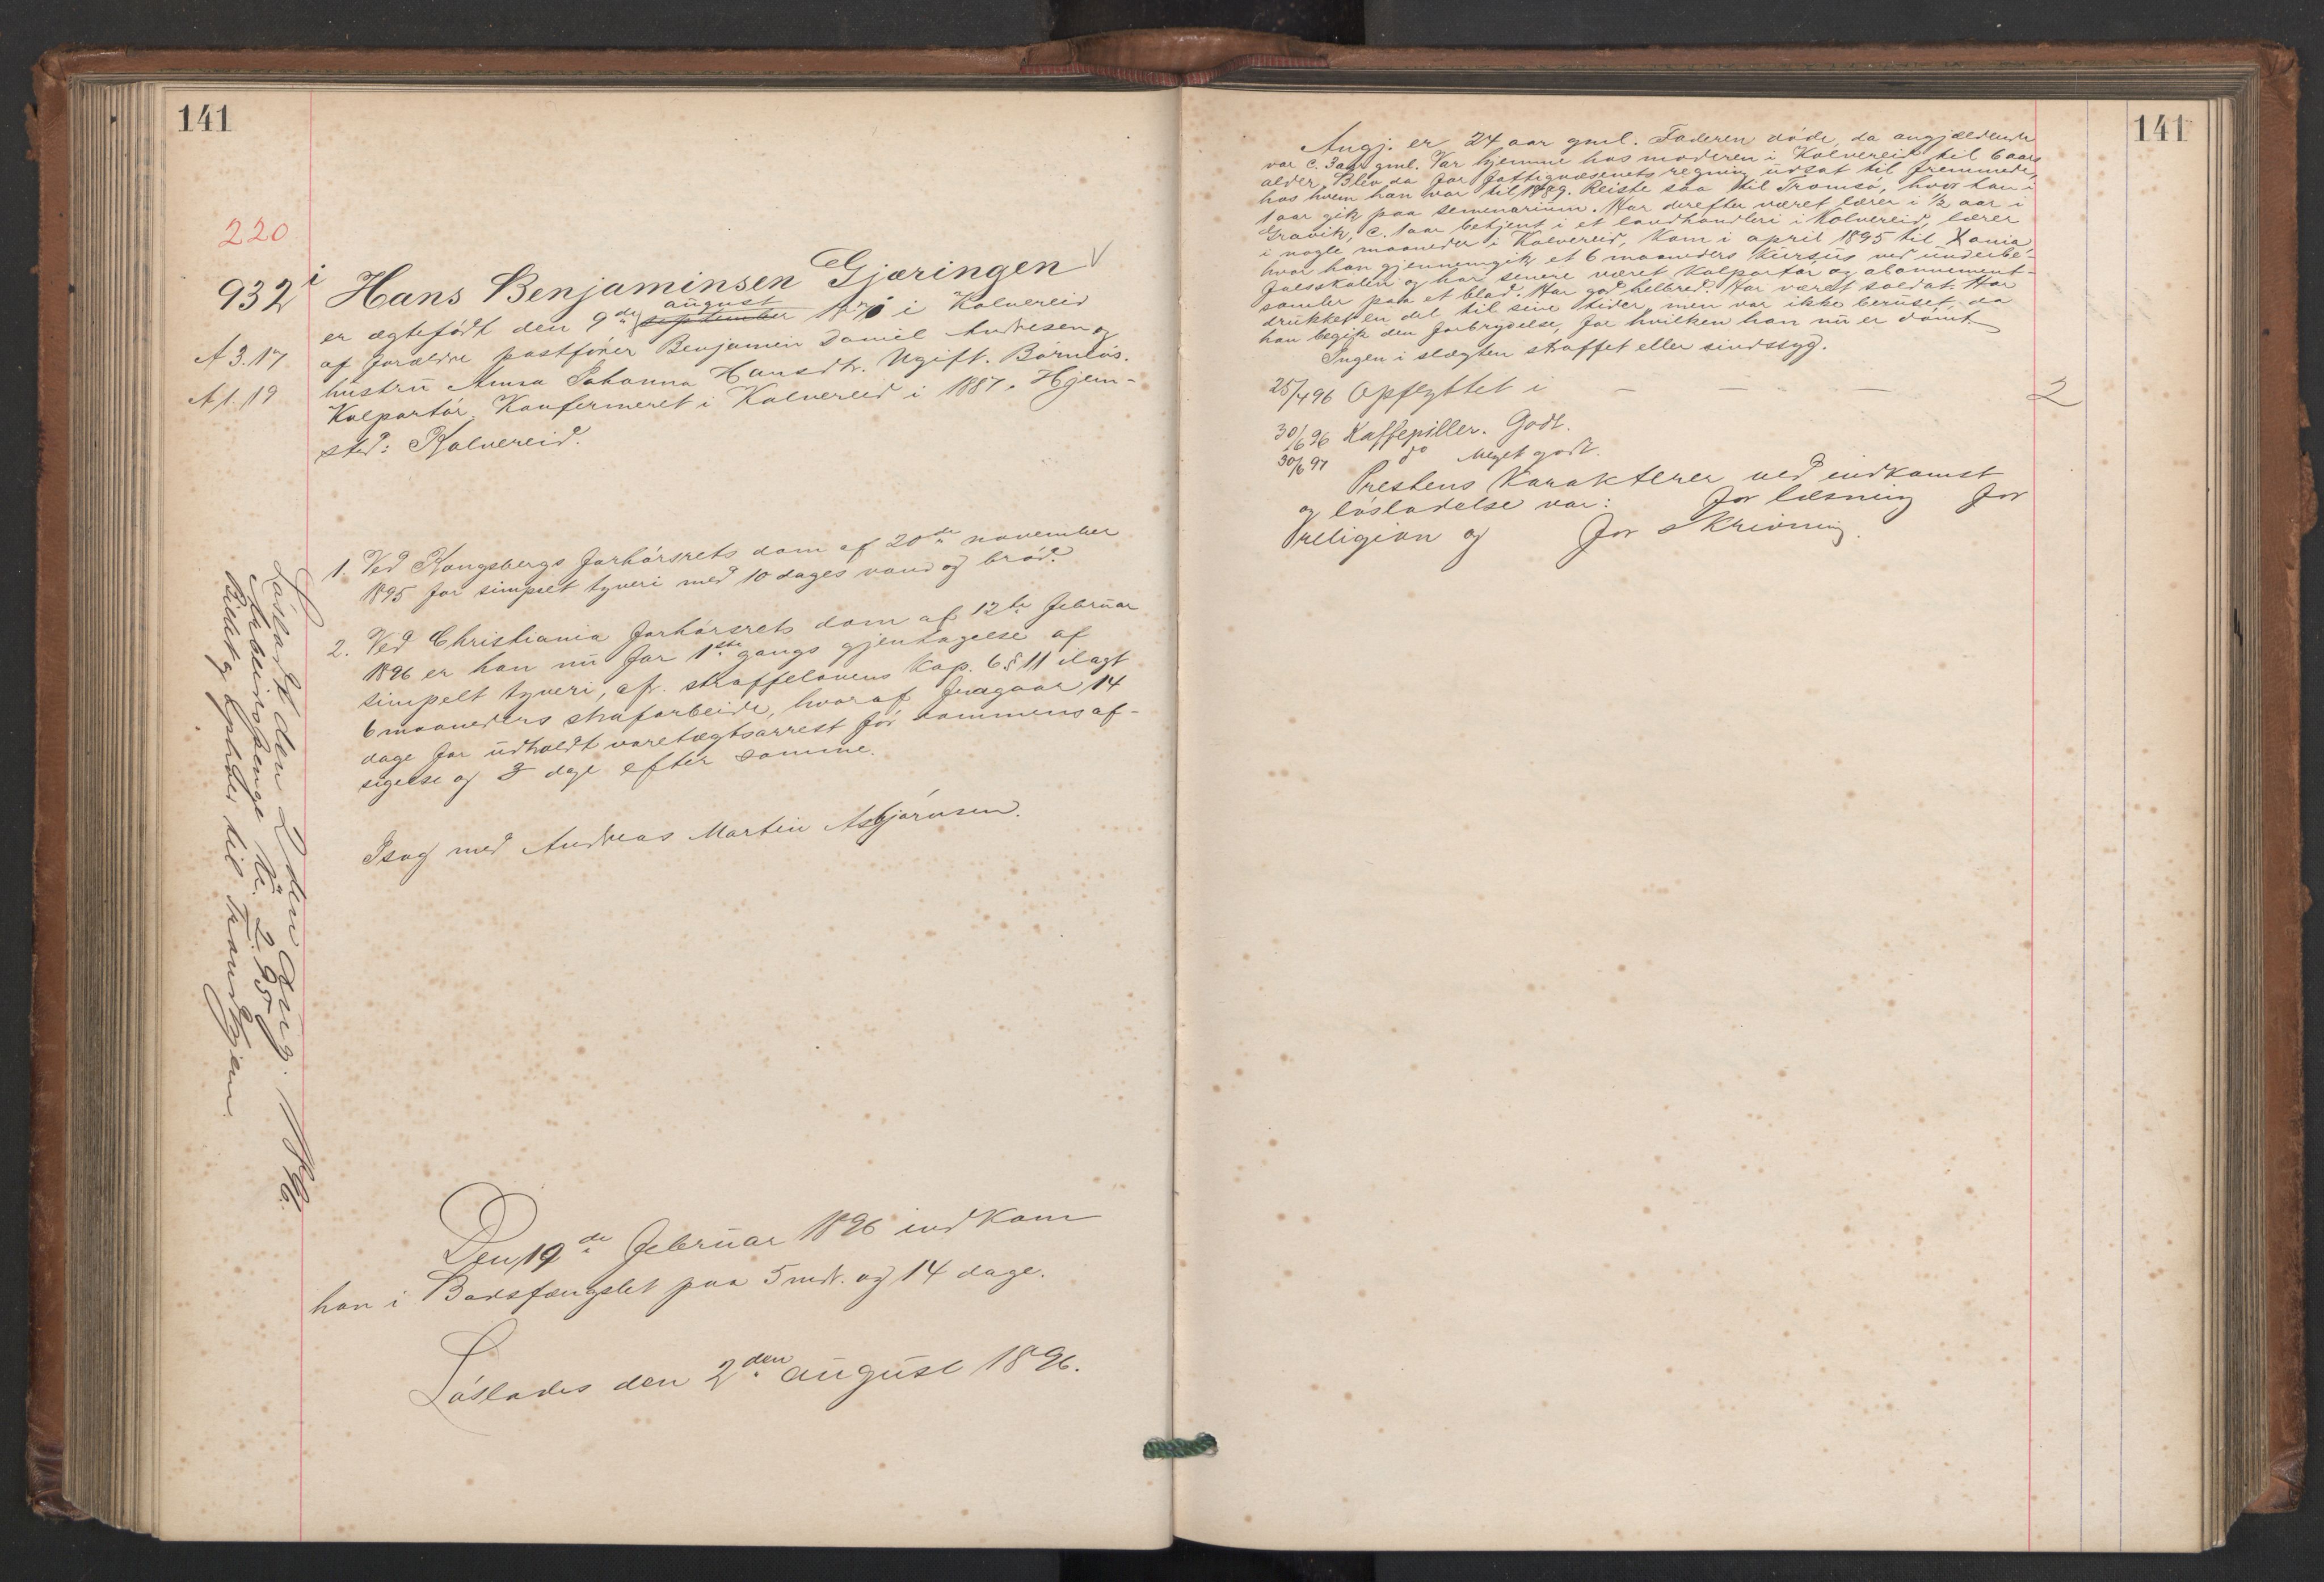 141
220
932 i Hans Benjaminsen Gjæringen
august
er ægtefödt den 9de september 187 i Kolvereid
A 3.17 af forældre postförer Benjamin Daniel Andresen og
A 1.19 hustru Anna Johanna Hansdtr. Ugift. Börnlös.
Kolportör. Konfermeret i Kolvereid i 1887. Hjem-
sted: Kolvereid.
1. Ved Kongsbergs forhörsrets dom af 20de november
1895 for simpelt tyveri med 10 dages vand og bröd.
2. Ved Christiania forhörsrets dom af 12te februar
1896 er han nu for 1ste gangs gjentagelse af
simpelt tyveri, efr. straffelovens Kap. 6 § 11 ilagt
6 maaneders strafarbeide, hvoraf fragaar 14
dage for udholdt varetægtsarrest för dommens af-
sigelse og 3 dage efter samme.
Isag med Andreas Martin Asbjörnsen.
Lösladt den 2den Aug. 1896.
Arbeidspenge Kr. 2.95
Billet og Ophold til Trondhjem.
Den 19de februar 1896 indkom
han i Bodsfængslet paa 5 mdr. og 14 dage.
Löslades den 2den august 1896.
141
Angj. er 24 aar gml. Faderen döde, da angjældende
var c. 3 aar gml. Var hjemme hos moderen i Kolvereid til 6 aars
alder. Blev da for fattigvæsenets regning udsat til fremmede,
hos hvem han var til 1889. Reiste saa til Tromsö, hvor han i
1 aar gik paa semenarium. Har derefter været lærer i ½ aar i
Gravik, c. 1 aar betjent i et landhandleri i Kolvereid, lærer
i nogle maaneder i Kolvereid, kom i april 1895 til Xania,
hvor han gjennemgik et 6 maaneders kursus ved underbe-
falsskolen og har senere været kolportör og abonnement-
samler paa et blad. Har god helbred. Har været soldat. Har
drukket en del til sine tider, men var ikke beruset, da
han begik den forbrydelse, for hvilken han nu er dömt.
Ingen i slægten straffet eller sindssyg.
25/4 96 Opflyttet i — — — 2
30/6 96 Kaffepiller. Godt.
30/6 97 do Meget godt.
Prestens Karakterer ved indkomst
og lösladelse var: for læsning for
religion og for skrivning.